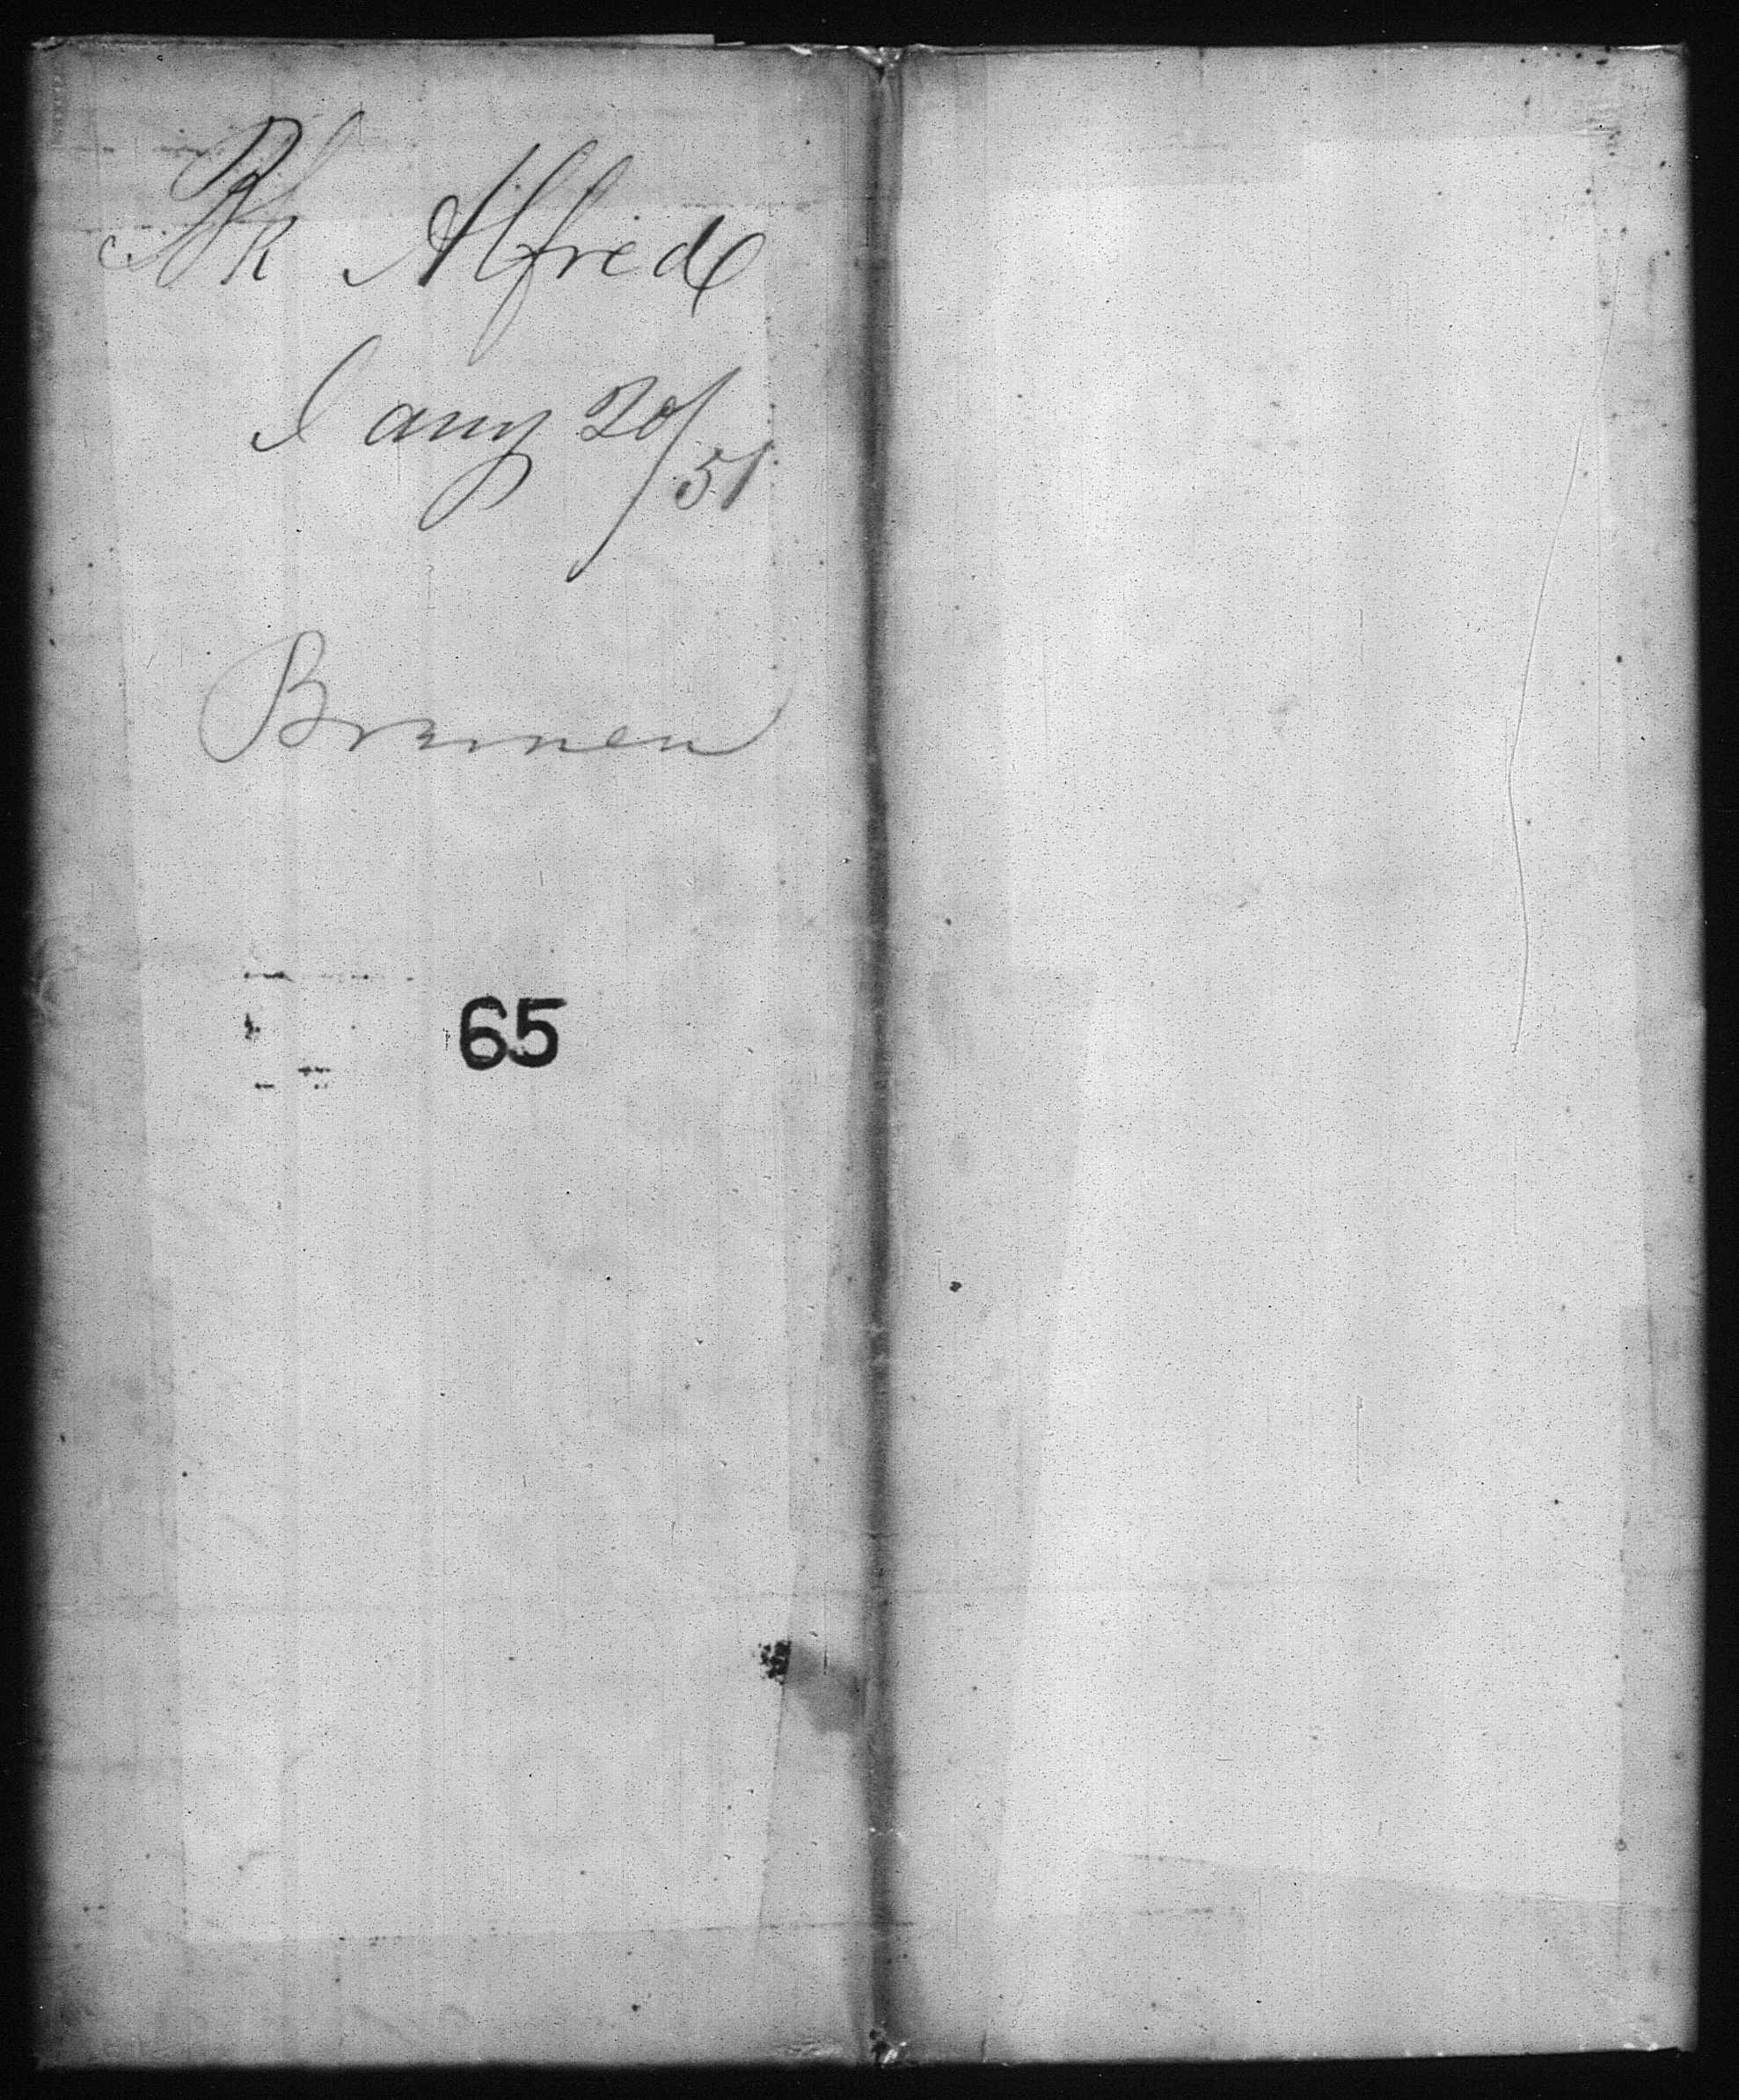 Bk Alfred
Jany 20/51
Bremen
65